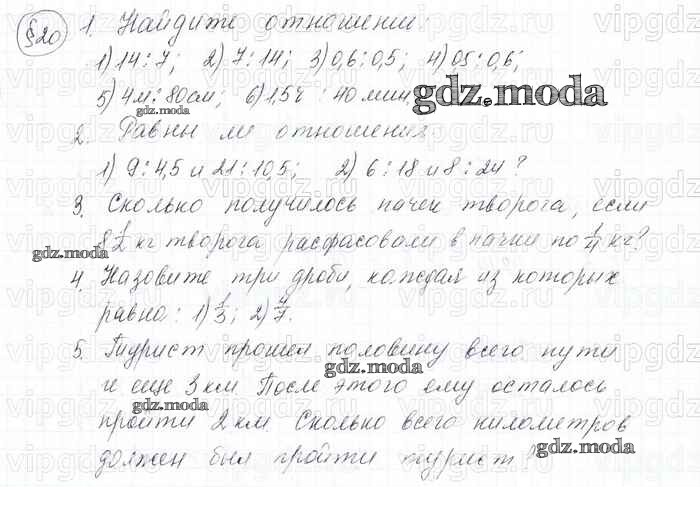 §20 1. Найдите отношения:
1) 14:7; 2) 7:14; 3) 0,6:0,5; 4) 0,5:0,6;
5) 4м:80см; 6) 1,5ч : 40 мин,
gdz.moda
gdz.moda
2. Равны ли отношения:
1) 9:4,5 и 21:10,5; 2) 6:18 и 8:24?
3. Сколько получилось пачек творога, если
8 1/2 кг творога расфасовали в пачки по 1/4 кг?
gdz.moda
4. Назовите три дроби, каждая из которых
равна: 1) 1/3; 2) 4/7.
5. Турист прошел половину всего пути
gdz.moda
и еще 3 км. После этого ему осталось
gdz.moda
пройти 2 км. Сколько всего километров
gdz.moda
должен был пройти турист?